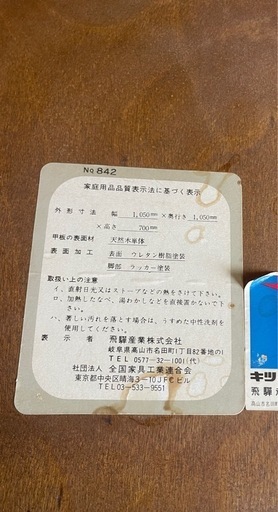 No 842
家庭用品品質表示法に基づく表示
外形寸法 幅 1,050mm×奥行き 1,050mm
×高さ 700mm
甲板の表面材 天然木単体
表面加工 表面 ウレタン樹脂塗装
脚部 ラッカー塗装
取扱い上の注意
イ、直射日光又はストーブなどの熱をさけて下さい。
ロ、加熱したなべ、湯わかしなどを直接置かないで下さい。
ハ、著しい汚れを落とす場合は、うすめた中性洗剤を使用してください。
表示者 飛騨産業株式会社
岐阜県高山市名田町1丁目82番地の1
TEL 0577-32-1001(代)
社団法人 全国家具工業連合会
東京都中央区晴海3-10JFCビル
TEL03-533-9551
キツ
飛騨
高山市名田